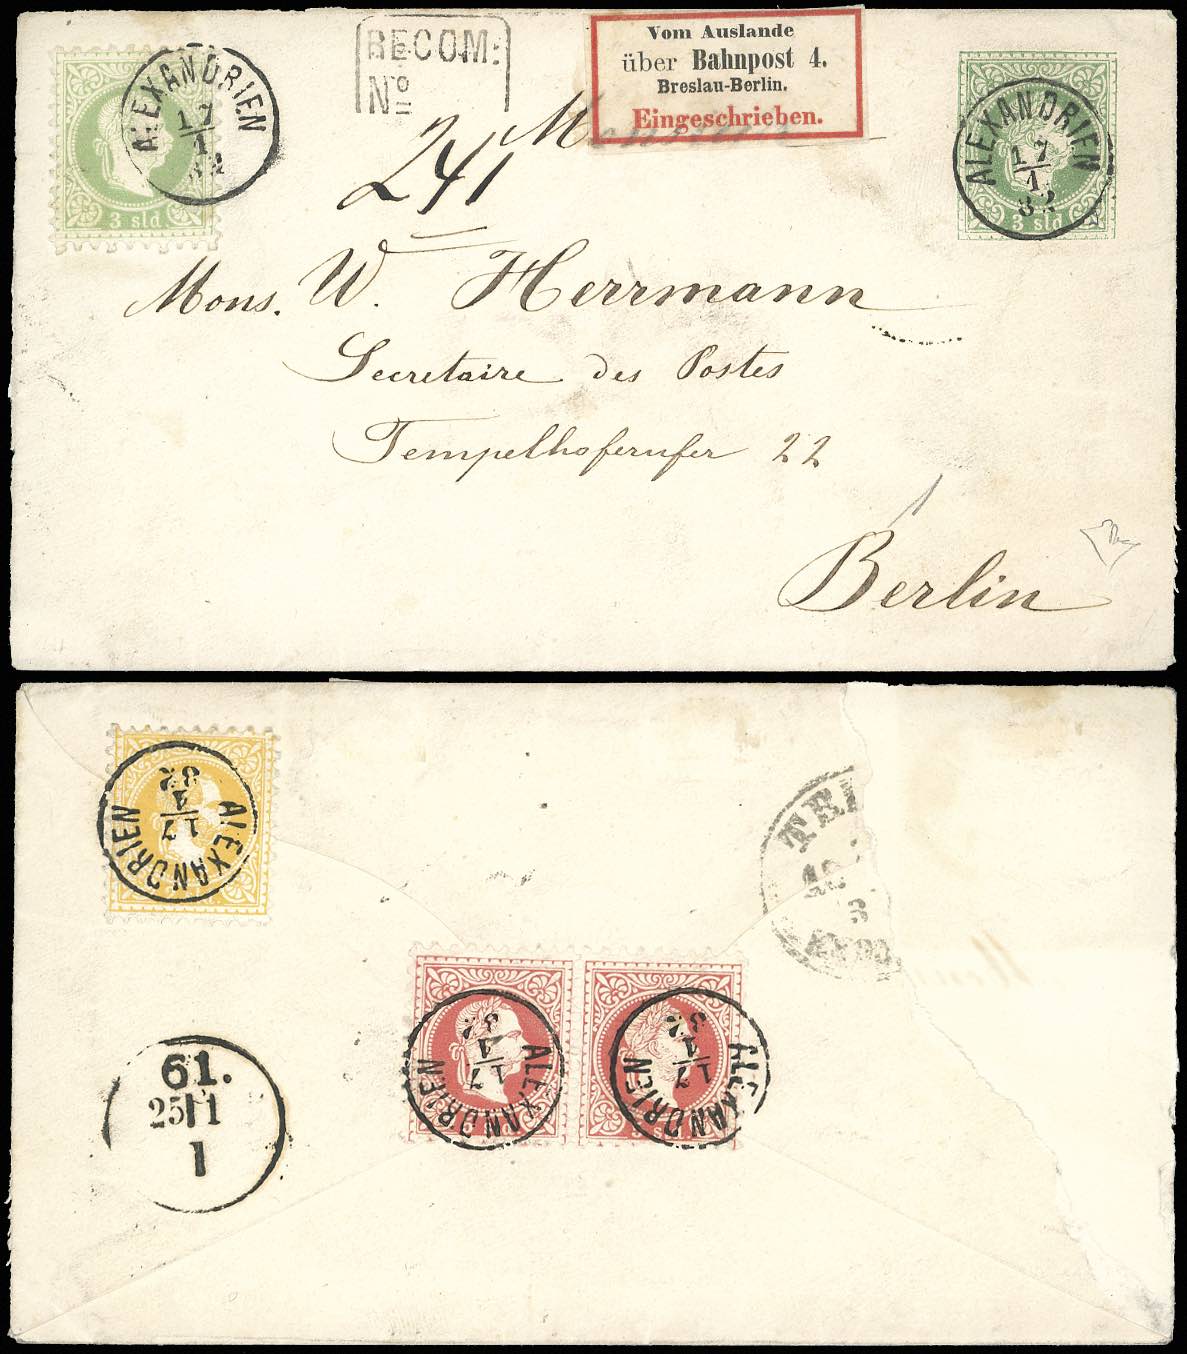 RECOM:
No
Vom Auslande
über Bahnpost 4.
Breslau-Berlin.
Eingeschrieben.
ALEXANDRIEN
17
1
82
3 sld
ALEXANDRIEN
17
1
82
3 sld
241
Mons. W. Herrmann
Secretaire des Postes
Tempelhoferufer 22
Berlin
ALEXANDRIEN
17
1
82
ALEXANDRIEN
17
1
82
5 sld
ALEXANDRIEN
17
1
82
5 sld
61.
25 1
1